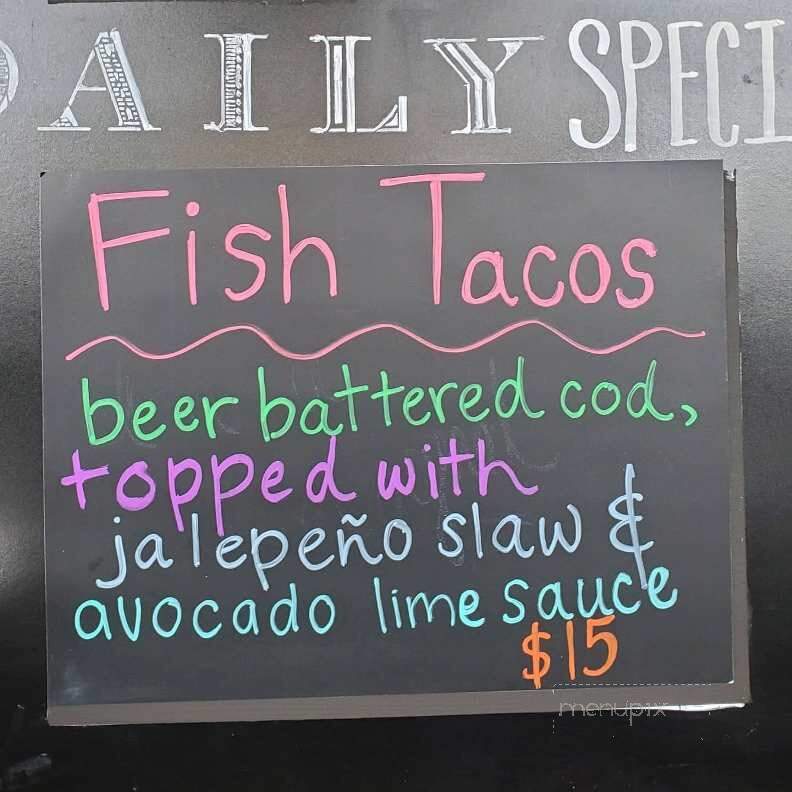 DAILY SPECI
Fish Tacos
beer battered cod,
topped with
jalepeño slaw &
avocado lime sauce
$15
menupix